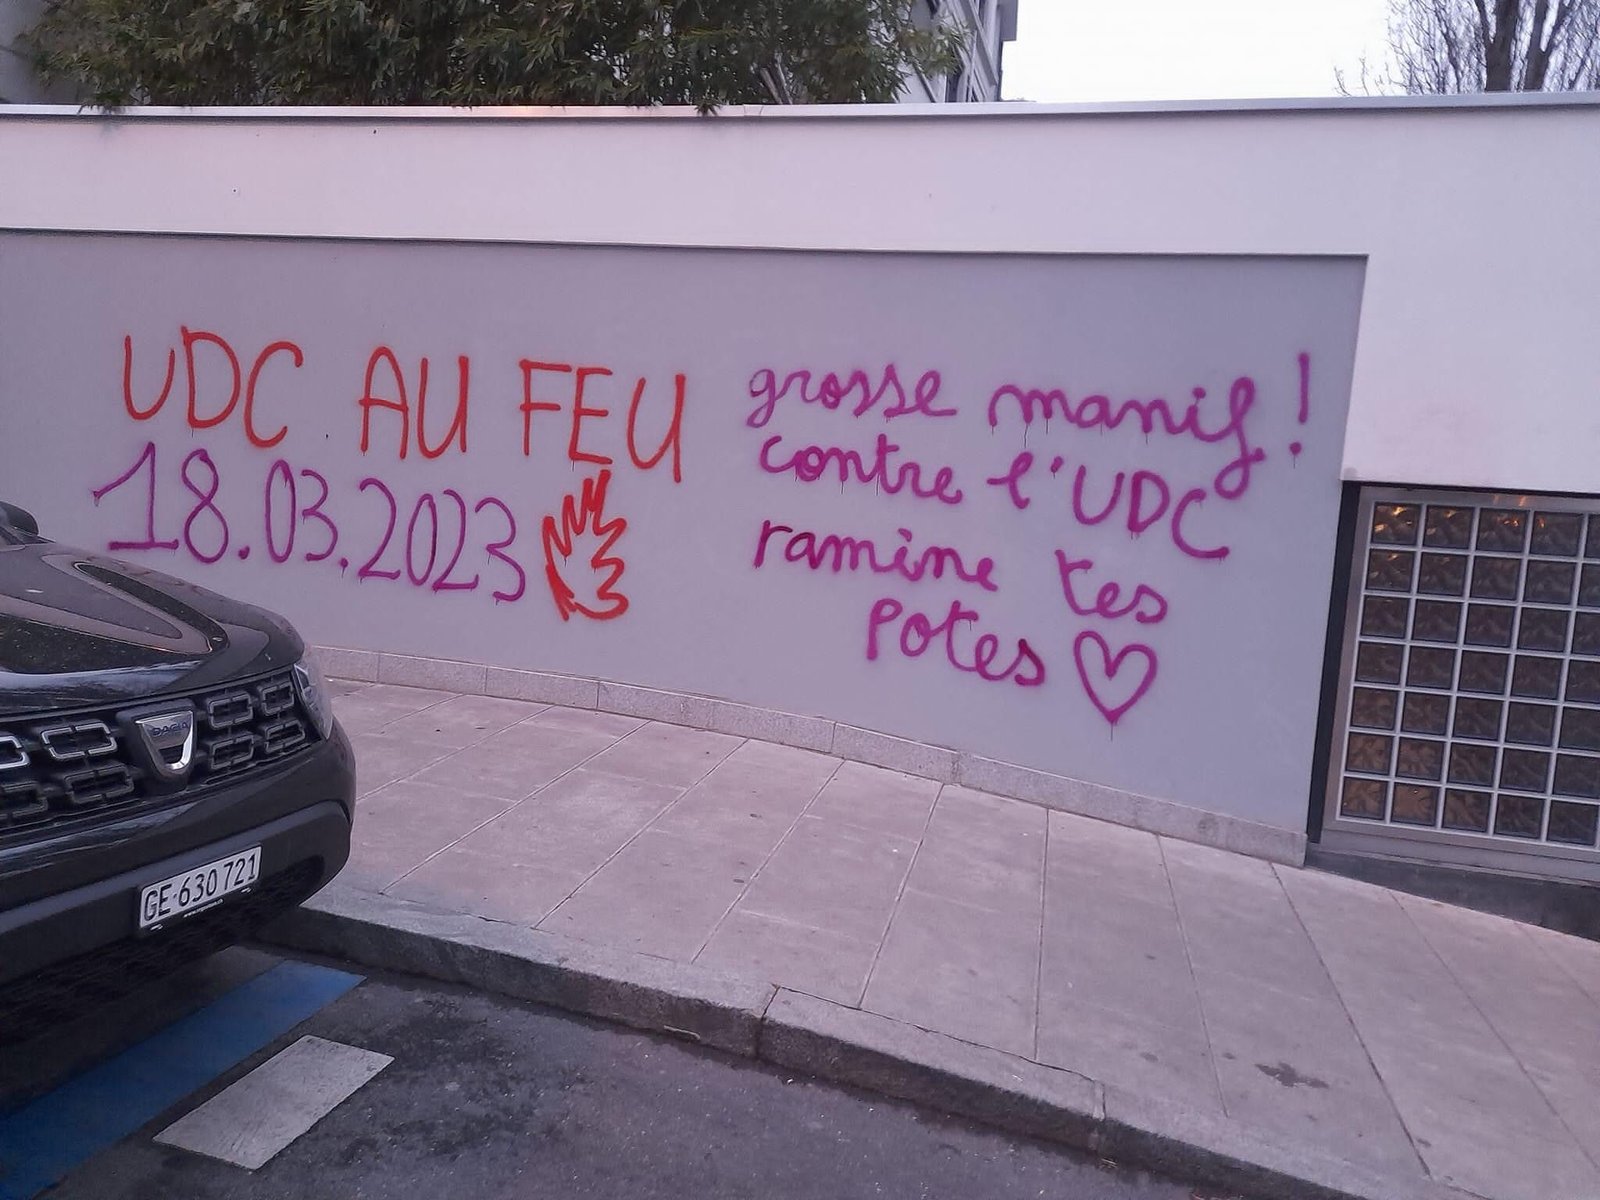 UDC AU FEU
18.03.2023
grosse manif!
contre l'UDC
ramine tes
potes
DACIA
GE·630721